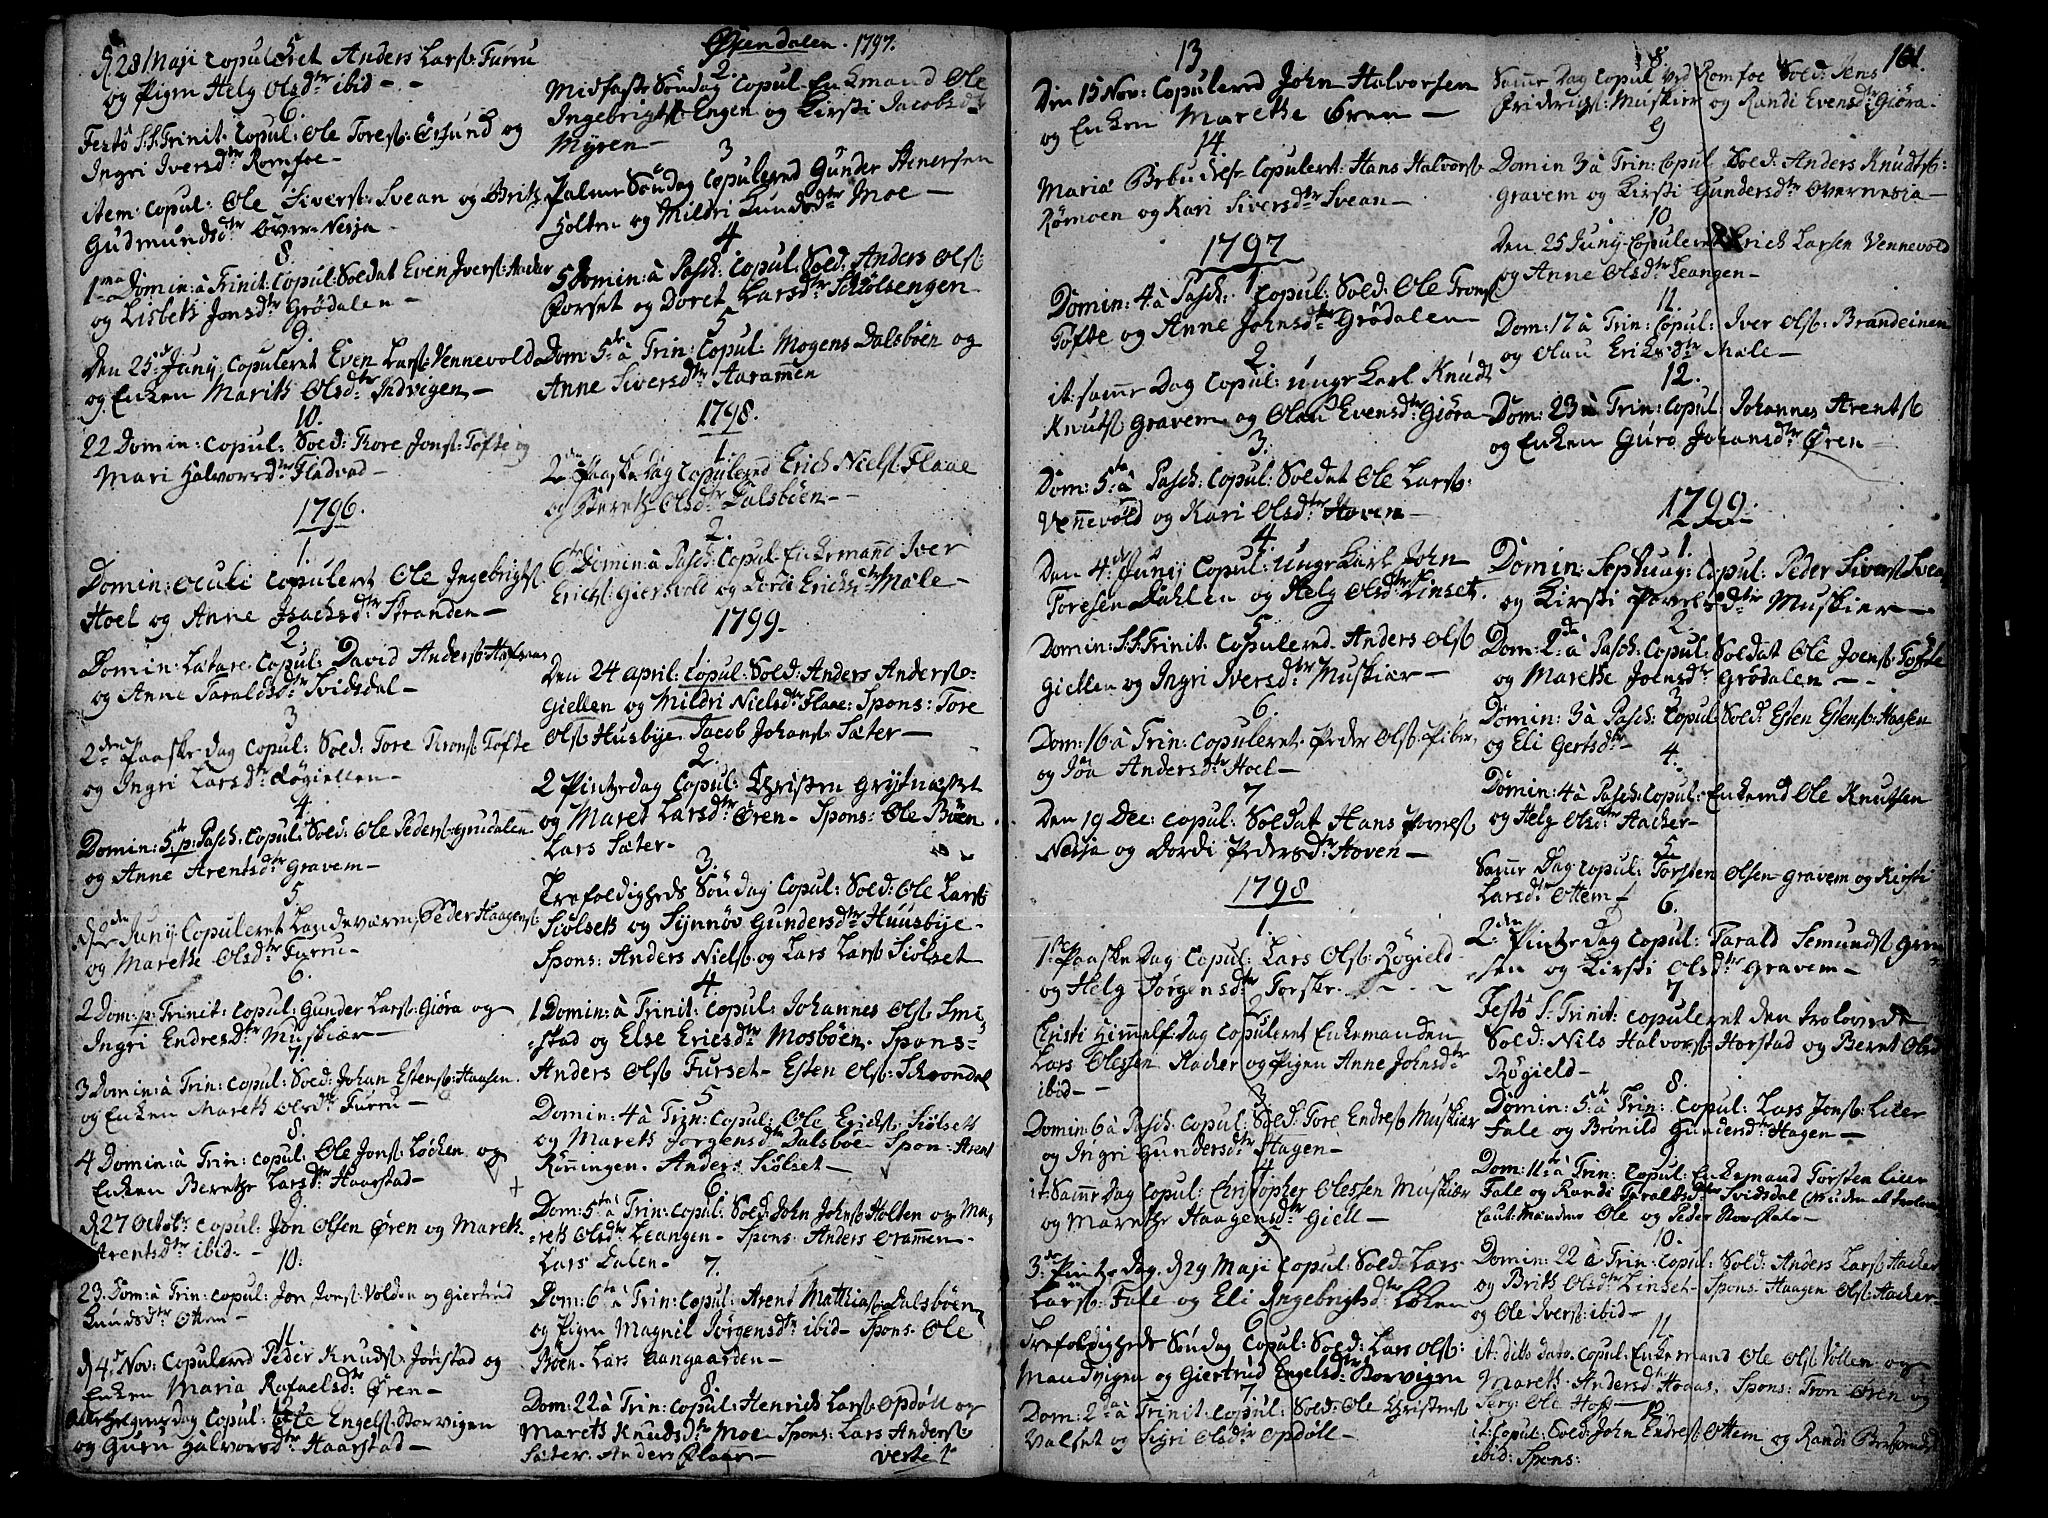 5
d 28 Maji Copuleret Anders Larsß: Furru
og Pigen Helg Olsdtr ibid -
6.
Festo S.S. Trinit. Copul: Ole Toresß: Øhsund og
Ingri Iversdtr Romfoe -
7
item: Copul: Ole Siversß: Svean og Brit
Gudmundsdtr Over-Nesja -
8
1ma Domin: à Trinit: Copul: Soldat Even Iversß:
og Lisbeth Jonsdtr Grødalen -
9.
den 25de Junij Copuleret Even Larsß: Vennevold
og Enken Marith Olsdtr Indvigen -
10.
22 Domin: Copul: Sold: Thore Jonsß: Tofte og
Mari Halvorsdtr Fladvad -
1796.
1.
Domin: Oculi Copuleret Ole Ingebrigtsß.
Hoel og Anne Isachsdtr Stranden -
2.
Domin: Lætare Copul: David Andersß
og Anne Taraldsdtr Svidsdal -
3
2den Paaske dag Copul: Sold: Tore Tronsß Tofte
og Ingri Larsdtr Røgiellen -
4.
Domin: 5te p: Pasch: Copul: Sold: Ole Pedersß: Grudalen
og Anne Arentsdtr Gravem -
5.
d 2den Junij Copuleret Landeværn: Peder Haagensß:
og Marethe Olsdtr Furru -
6.
2 Dom: p: Trinit: Copul: Gunder Larsß: Giøra og
Ingri Endresdtr Muskiær -
7
3 Domin: à Trin: Copul: Sold: Johan Estensß: Haasen.
og Enken Mareth Olsdtr Furru -
8
4 Domin: à Trin: Copul: Ole Jonsß: Løcken og
Enken Berethe Larsdtr Haarstad -
9
d 27 Octobr: Copul: Jon Olsen Øren og Mareth
Arentsdtr ibid -
10.
23. Dom: à Trin: Copul: Jon Jonsß: Volden og Giertrud
Knudsdtr Ottem -
11
d 4de Nov: Copulered Peder Knudsß: Jøristad og
Enken Maria Rafaelsdtr Øren -
12
Allehelgens dag Copul: Ole Engelsß: Storvigen
og Guru Halvorsdtr Haarstad -
Øxendalen. 1797.
2.
Midfaste Søndag Copul: Enkemand Ole
Ingebrigtsß Engen og Kirsti Jacobsdtr
Myren -
3
Palme Søndag Copulered Gunder
Holten og Mildri Knudsdtr Moe -
4
5 Domin: à Pasch: Copul: Sold: Anders Olsß:
Forset og Doret Larsdtr Schiølsengen
5
Dom: 5te à Trin: Copul: Mogens Dalsbøen og
Anne Siversdtr Aaramen
1798.
1.
2den Paaske Dag Copulered Erich Nielsß: Flaae
og Bereth Olsdtr Dalsbøen -
2.
6te Domin: à Pasch: Copul: Enkemand Iver
Erichsß: Gierhvold og Dordi Erichsdtr Mæle -
1799.
1
Den 24 April Copul: Sold: Anders Andersß-
Giellen og Mildri Nielsdtr Flaae: Spons: Tore
Olsß Husbye. Jacob Johansß Sæter -
2.
2 Pintzedag Copul: Christen Grytnæsset
og Maret Larsdtr Øren - Spons: Ole Bøen.
Lars Sæter -
3.
Trefoldigheds Søndag Copul: Sold: Ole Larsß
Siølseth og Synnøv Gundersdtr Huusbye -
Spons: Anders Nielsß og Lars Larsß Siølset
4.
1 Domin: à Trinit: Copul: Johannes Olsß Smi-
-stad og Else Ericsdtr Mosbøen. Spons -
Anders Olsß Furset - Esten Olsß: Schrondal
5
Domin: 4 à Trin: Copul: Ole Erichsß: Siølseth
og Mareth Jørgensdtr Dalsbøe - Spon: Arent
Rønningen. Anders Siølset -
6
Dom: 5ta à Trin: Copul: Sold: John Johnsß: Holten og Ma-
-reth Olsdtr Leangen - Spons: Anders Oramen -
Lars Dalen -
7.
Dom: 6ta à Trin: Copul: Arent Mathiasß: Dalsbøen
og Pigen Magnil Jørgensdtr ibid - Spons: Ole
Bøen. Lars Aangaarden -
8
Dom: 22 à Trin: Copul: Henrich Larsß: Opdøll og
Mareth Knudsdtr Moe - Spons: Lars Andersß:
Sæter. Anders Flaae -
verte
101.
13
Den 15 Nov: Copulered John Halvorsen
og Enken Marethe Øren -
14.
Mariæ Copuleret: Hans Halvorsß.
Rømoen og Kari Siversdtr Svean -
1797
1
Domin: 4 à Pasch: Copul: Sold: Ole Tronsß
Tofte og Anne Johnsdtr Grødalen
2
it: samme Dag Copul: unge Karl Knudt
Knutsß Gravem og Olau Evensdtr Giøra
3.
Dom: 5ta à Pasch: Copul: Soldat Ole Larsß:
Vennevold og Kari Olsdtr Hoven -
4.
Den 4de Junij Copul: unge Karl John
Toresen Dahlen og Helg Olsdtr Linset.
5
Domin: S.S. Trinit: Copulered Anders Olsß
Giellen og Ingri Iversdtr Muskiær -
6.
Dom: 16 à Trin: Copuleret Peder Olsß
og Joa Andersdtr Hoel -
7
Den 19 Dec: Copul: Soldat Hans
Nesja og Dordi Pedersdtr Hoven -
1798
1.
1ste Paaske Dag Copul: Lars Olsß: Røgield
og Helg Jørgensdtr Torske.
2
Christi Himmelf: Dag Copuleret Enkemanden
Lars Olessen Hacker og Pigen Anne Johnsdtr
ibid -
3
Domin: 6 à Pasch: Copul: Sold: Tore Endresß Muskiær
og Ingri Gundersdtr Hagen -
4
it: Samme Dag Copul: Christopher Olessen Muskiær
og Marethe Haagensdtr Giell -
5
3de Pintze Dag. d 29 Maji Copul: Sold: Lars
Larsß: Fale og Eli Ingebrigtsdtr Løken
6
Trefoldigheds Søndag Copul: Sold: Lars Olsß:
Maudvigen og Giertrud Engelsdtr Storvigen
7.
Dom: 2da à Trinit: Copul: Sold: Ole Christensß
Valset og Sigri Olsdtr Opdøll -
8
Samme Dag Copul ved Romfoe Sold: Jens
Friderigsß: Muskier og Randi Evensdtr Giøra -
9
Domin 3 à Trin: Copul Sold: Anders Knudtsß:
Gravem og Kirsti Gundersdtr Overnesia -
10
Den 25 Junij Copuleret Erich Larsen Vennevold
og Anne Olsdtr Leangen -
11.
Dom: 17 à Trin: Copul: Iver Olsß: Brandeinen
og Olau Eriksdtr Mæle -
12.
Dom: 23 à Trin: Copul Johannes Arentsß
og Enken Guro Johansdtr Øren -
1799.
1.
Domin: Septuag: Copul: Peder Siversß Svean
og Kirsti Povelsdtr Muskier -
2
Dom: 2da à Pasch: Copul: Soldat Ole Joensß: Tofte
og Marethe Joensdtr Grødalen -
3
Domin: 3 à Pasch: Copul Sold: Esten Estensß: Haasen
og Eli Gertsdtr -
4.
Domin: 4 à Pasch: Copul: Enkemd Ole Knutsen
og Helg Olsdtr Hacker -
5
Samme Dag Copul: Torsten Olsen Gravem og Kirsti
Larsdtr Ottem -
6.
2den Pintze dag Copul: Tarald Semundsß
og Kirsti Olsdtr Gravem -
7
Festo S: Trinit: Copuleret den trolovede
Sold: Nils Halvorsß: Horstad og Beret Olsd
Røgield -
8.
Domin: 5te à Trin: Copul: Lars Jonsß: Lille
Fale og Brønild Gundersdtr Hagen -
9
Dom: 11te à Trin: Copul: Enkemand Torsten Lille
Fale og Randi Taraltsdtr Svidsdal
Caut: Mændene Ole og Peder
10.
Domin: 22 à Trin: Copul: Sold: Anders Larsß Hacker
og Brith Olsdtr Linset - Spons: Haagen Olsß: Hacker -
og Ole Iversß: ibid -
11
it: dito dato. Copul: Enkemand Ole Olsß Vollen og
Mareth Andersdtr Hoaas. Spons: Tron Øren og
Serg: Ole Hoff -
12
it: Copul: Sold: John Endresß: Ottem og Randi
ibid: Spons: